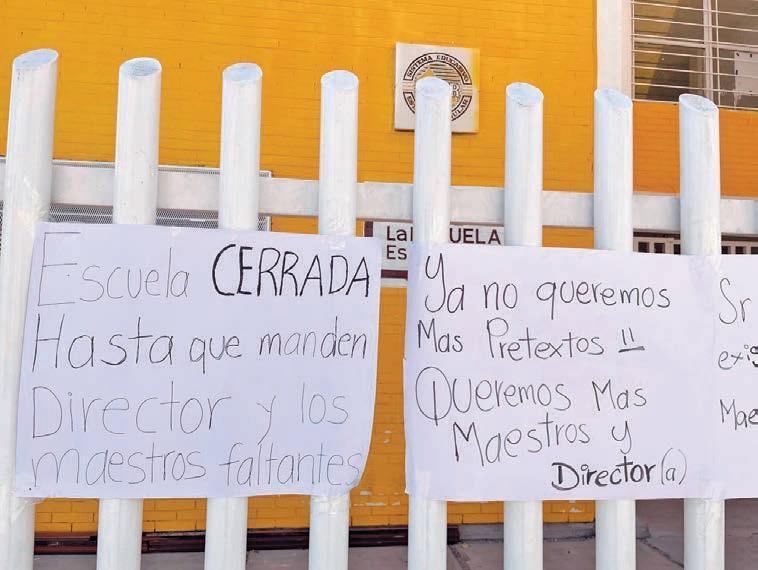 SISTEMA EDUCATIVO
Escuela CERRADA
Hasta que manden
Director y los
maestros faltantes
Ya no queremos
Mas Pretextos !!
Queremos Mas
Maestros y
Director(a)
Sr